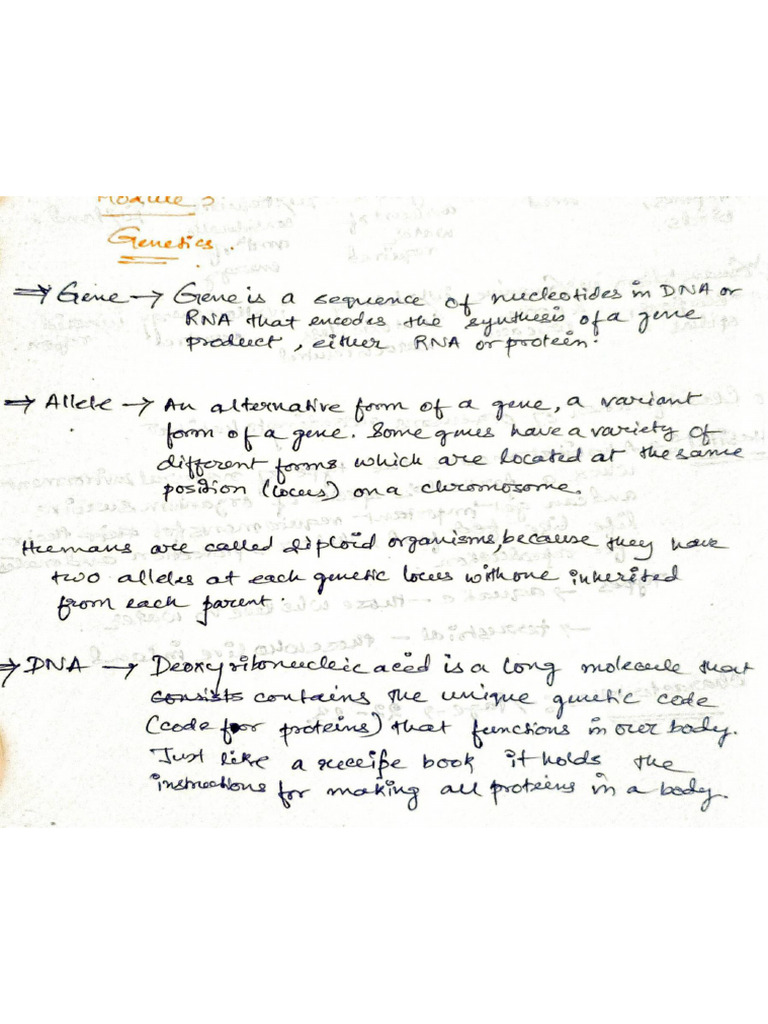 Module 3
Genetics.
⇒ Gene → Gene is a sequence of nucleotides in DNA or
RNA that encodes the synthesis of a gene
product, either RNA or protein.
⇒ Allele → An alternative form of a gene, a variant
form of a gene. Some genes have a variety of
different forms which are located at the same
position (locus) on a chromosome.
Humans are called diploid organisms, because they have
two alleles at each genetic locus with one inherited
from each parent.
⇒ DNA → Deoxyribonucleic acid is a long molecule that
consists contains the unique genetic code
(code for proteins) that functions in our body.
Just like a receipe book it holds the
instructions for making all proteins in a body.